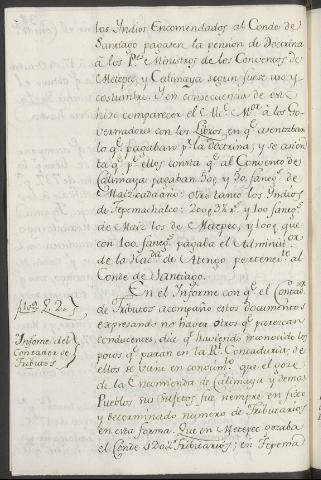 los Yndios Encomendados al Conde de
Santiago pagasen la pension de Doctrina
à los P.es Ministros de los Conventos de
Metepec, y Calimaya segun fuese uso y
costumbre. Y en consecuencia de esto
hizo comparecer el Alc.e M.or à los Go-
vernadores con los Libros, en q.e asentaban
lo q.e pagaban p.r la doctrina; y se asien-
ta q.e p.r ellos consta q.e al Convento de
Calimaya pagaban y 30 faneg.s de
Maiz cada año: otro tanto los Yndios
de Tepemachalco: y 100 faneg.s
de Maiz los de Metepec, y 100p que
con 100 faneg.s pagaba el Administ.or
de la Haz.da de Atengo pertenec.te al
Conde de Santiago.
En el Informe con q.e el Contad.or
de Tributos acompaño estos documentos
expresando no haver otros q.e parescan
conducentes, dice q.e haviendo reconocido los
pocos q.e paran en la R.l Contaduria, de
ellos se viene en conocim.to que el goze
de la Encomienda de Calimaya y demas
Pueblos sus Sujetos fue siempre en fixo
y determinado numero de Tributarios
en esta forma. Que en Metepec gozaba
el Conde Tributarios; en Tepema
Informe del
Contador de
Tributos